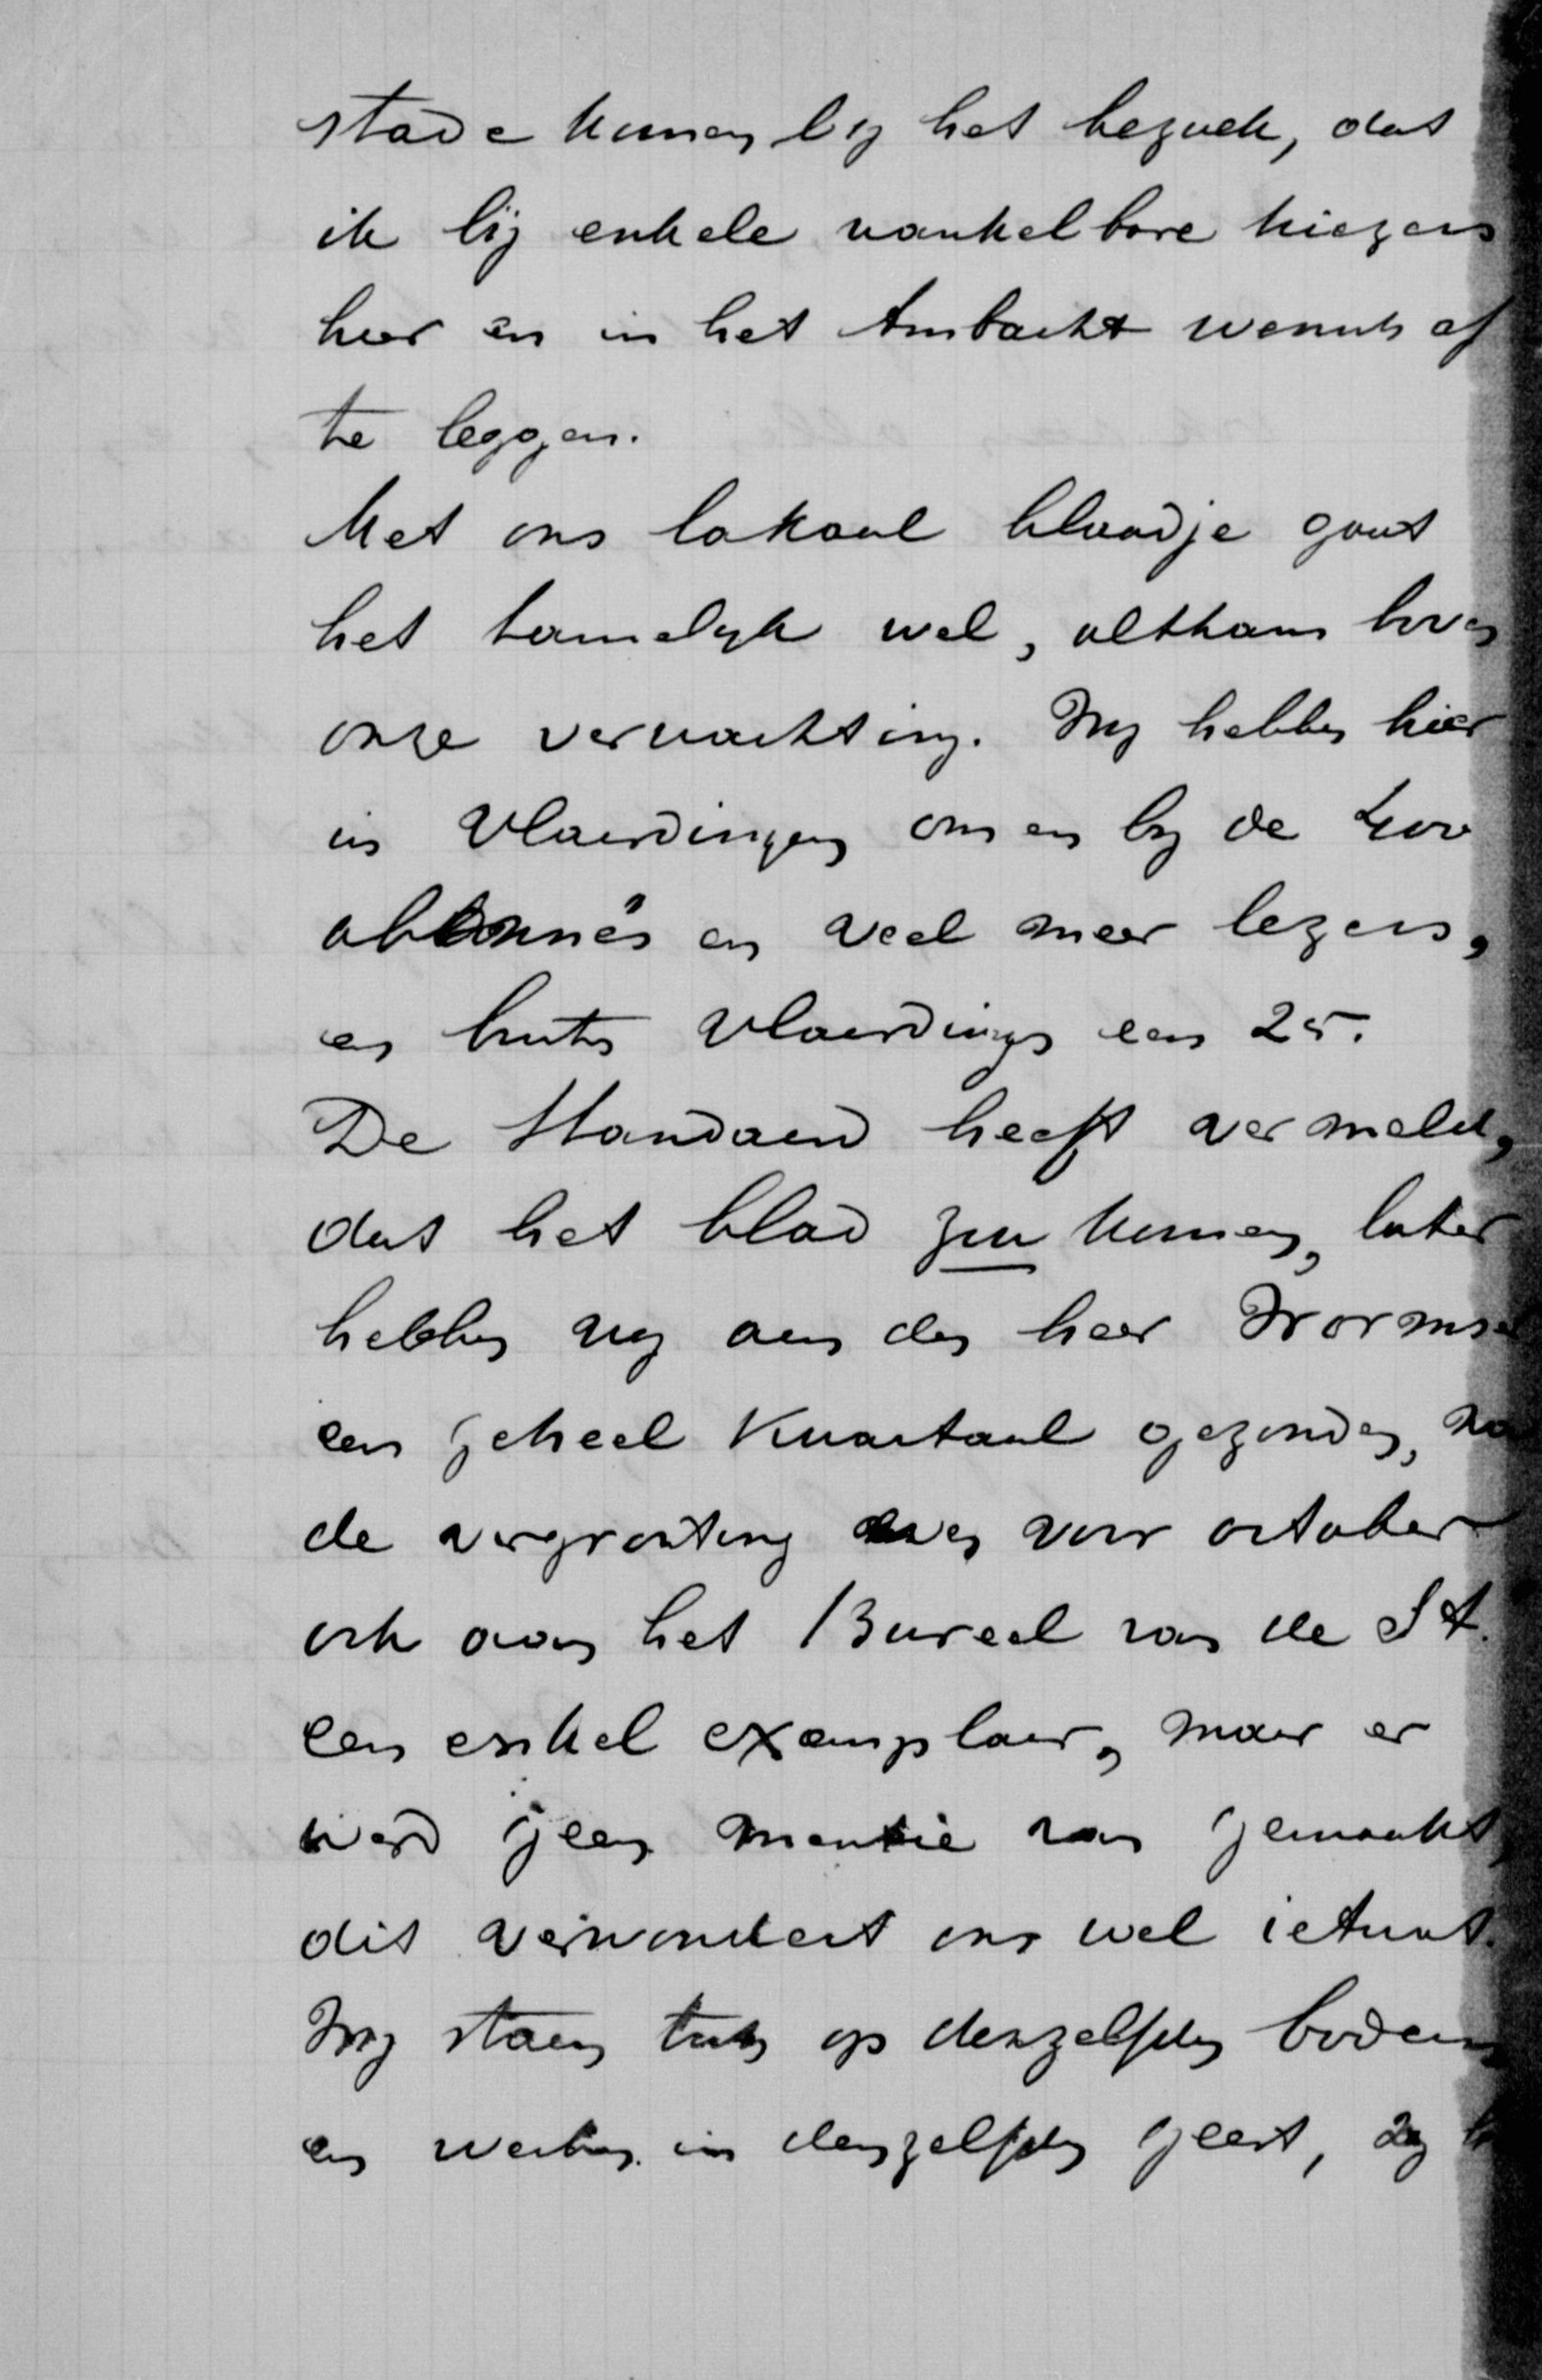 stade komen bij het bezoek, dat
ik bij enkele wankelbare kiezers
hier en in het Ambacht wensch af
te leggen.
Met ons lokaal blaadje gaat
het tamelijk wel, althans boven
onze verwachting. Wij hebben hier
in Vlaardingen om en bij de 400
abonnés en veel meer lezers,
en buiten Vlaardingen een 25.
De Standaard heeft vermeld,
dat het blad zou komen, later
hebben wij aan den heer Wormser
een geheel Kwartaal gezonden, na
de vergrooting even voor october
ook aan het Bureel van de St.
een enkel exemplaar, maar er
werd geen mentie van gemaakt,
dit verwondert ons wel ietwat.
Wij staan toch op denzelfden bodem
en werken in denzelfden geest, zij